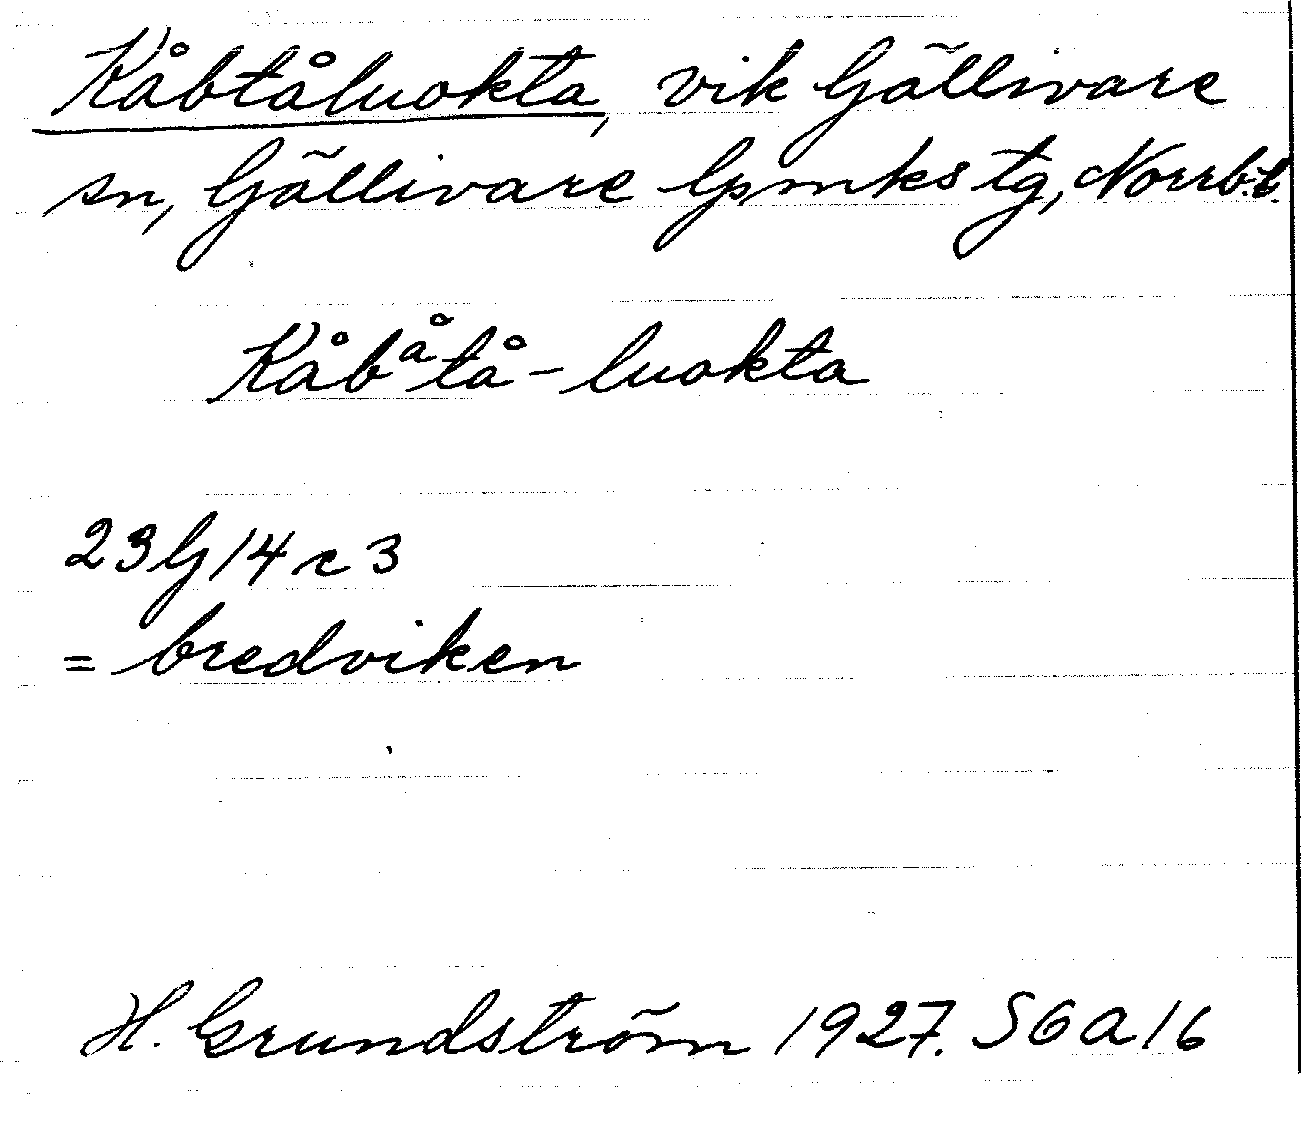 Kåbtåluokta, vik Gällivare
sn, Gällivare lpmks tg, Norrb.l.
Kåbåtå-luokta
23G14c3
= bredviken
H. Grundström 1927. SGA16